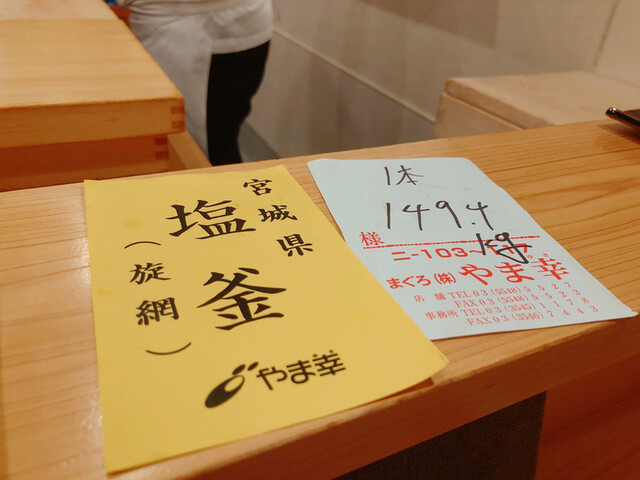 宮城県
塩釜
(旋網)
やま幸
1本
149.4
様
ニ-103~
まぐろ(株)やま幸
店舗 TEL03(5548)5527
FAX03(5548)5523
事務所 TEL03(3545)1178
FAX03(3546)7443